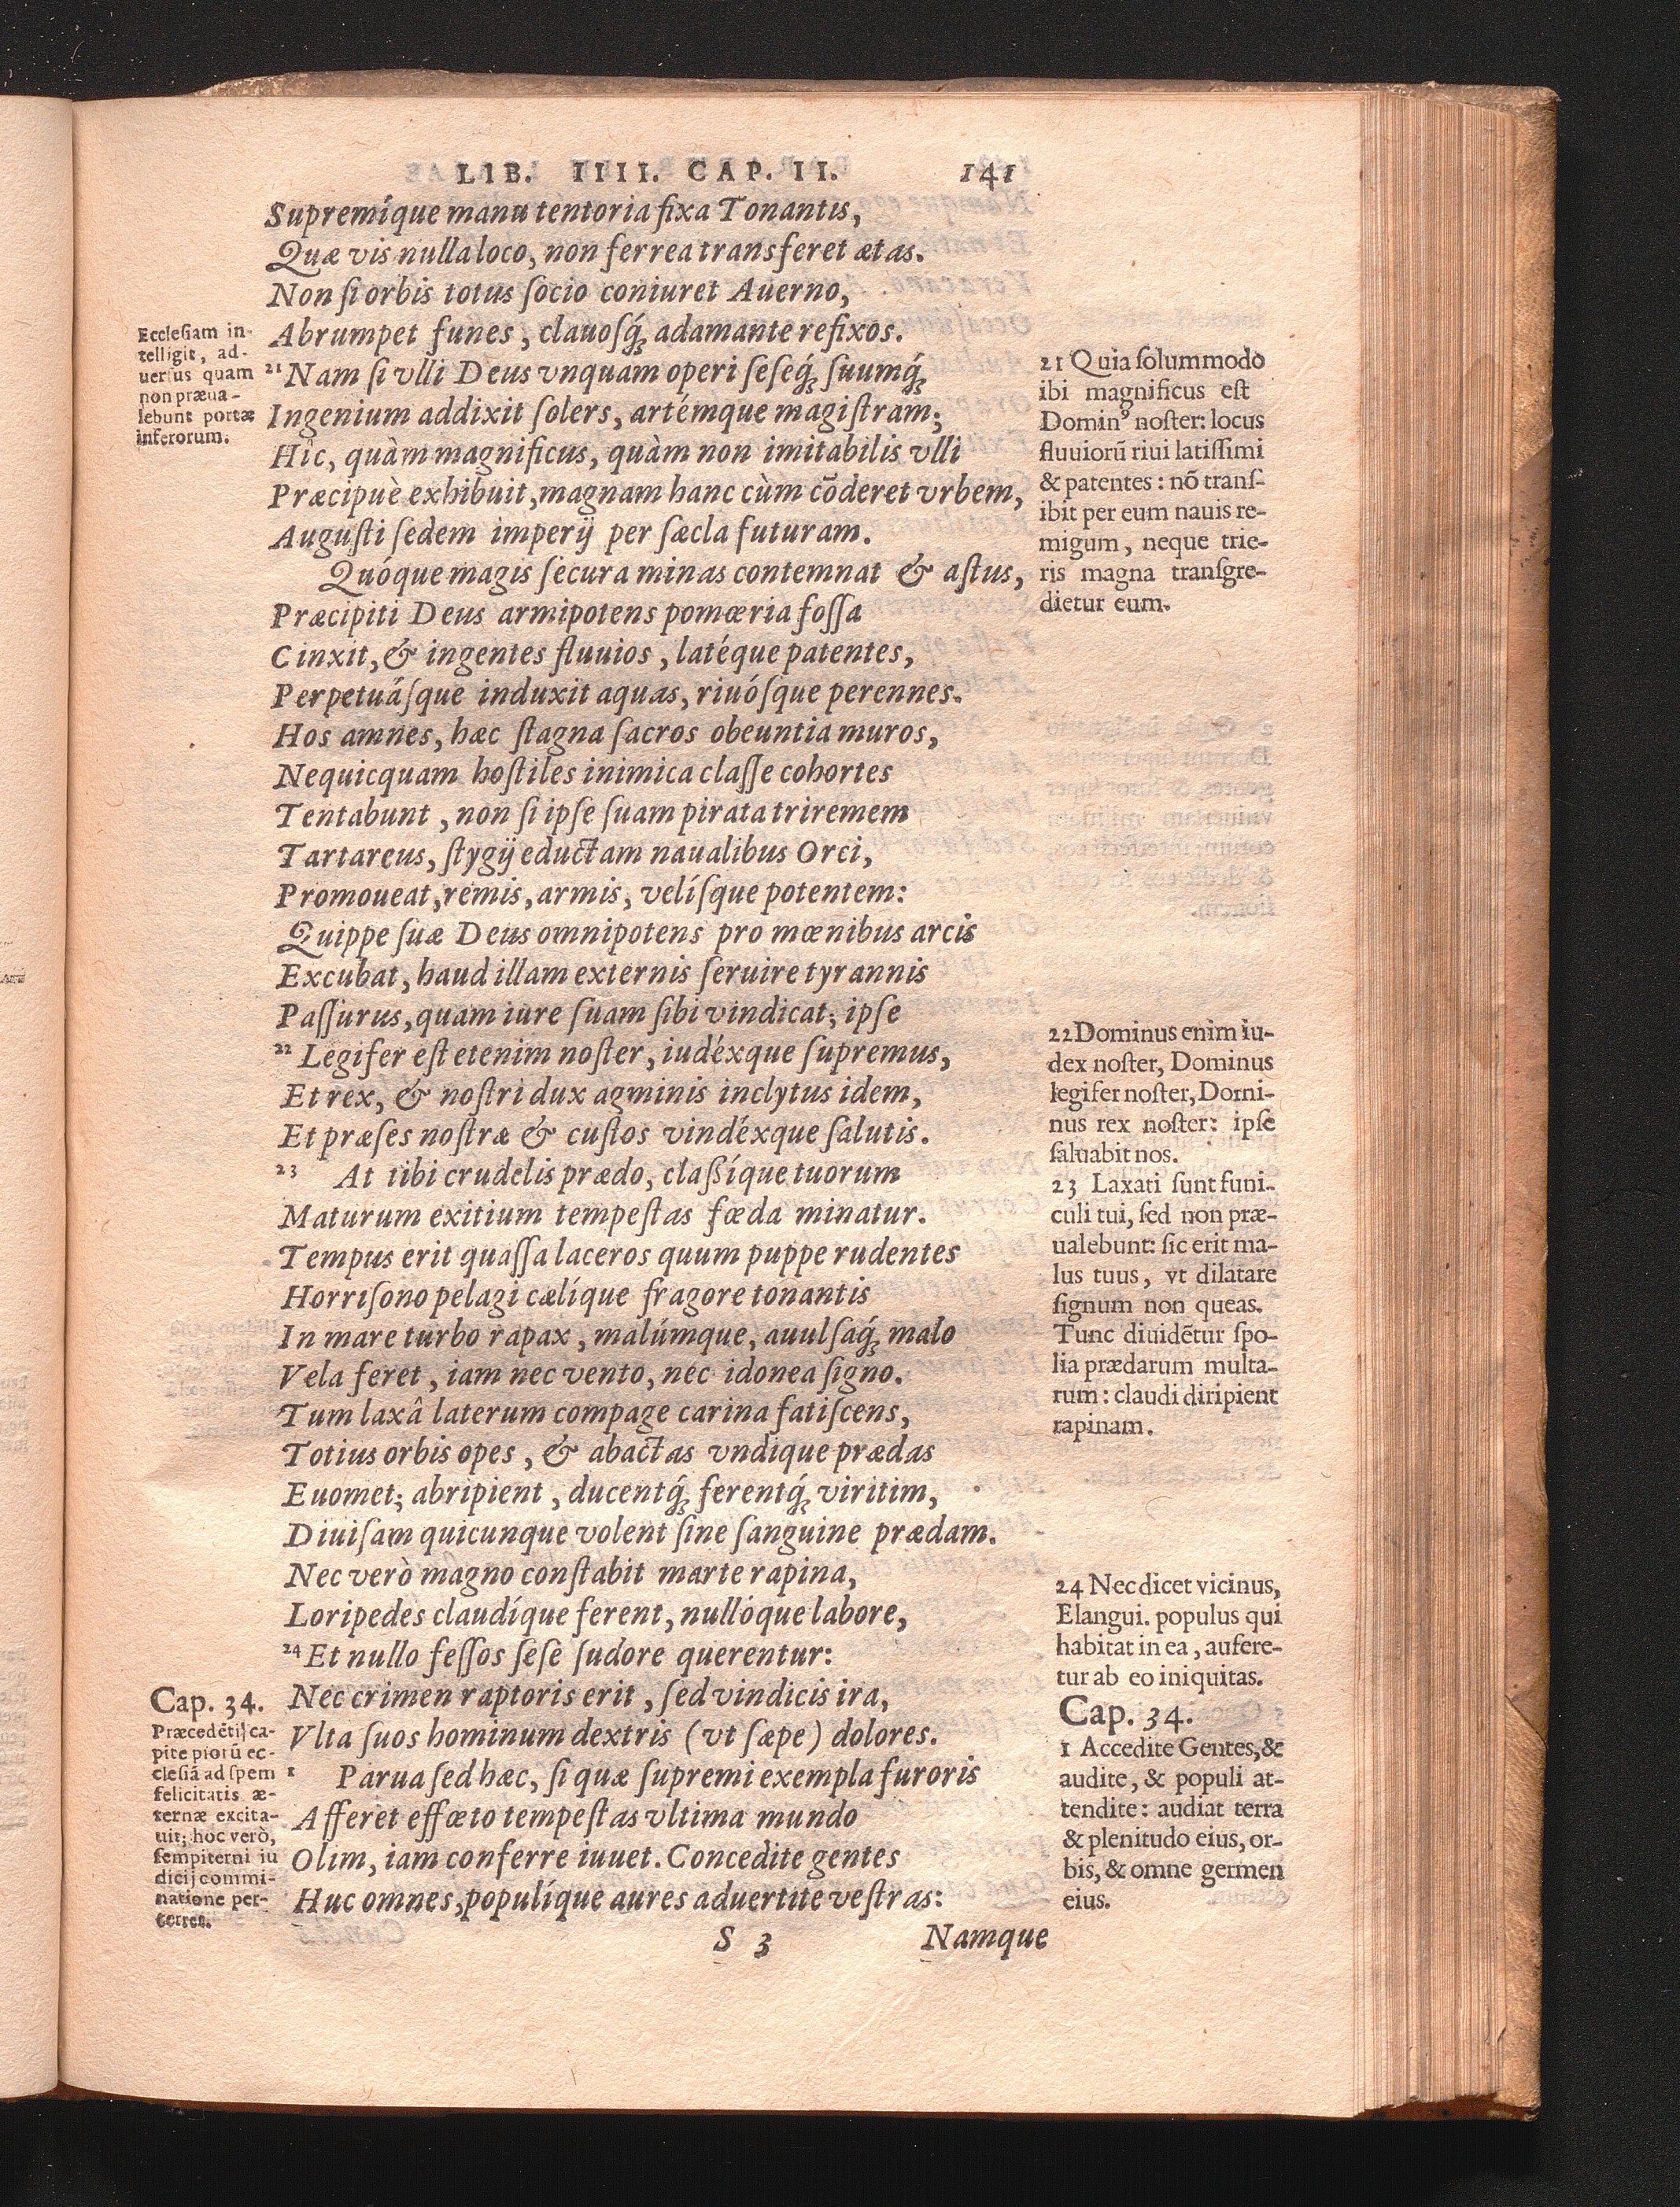 LIB. IIII. CAP. II. 141
Supremíque manu tentoria fixa Tonantis,
Quæ vis nulla loco, non ferrea transferet ætas.
Non ſi orbis totus ſocio coniuret Auerno,
Abrumpet funes, clauoſq́; adamante refixos.
²¹ Nam ſi vlli Deus vnquam operi ſeſeq́; ſuumq́;
Ingenium addixit ſolers, artémque magiſtram;
Hîc, quàm magnificus, quàm non imitabilis vlli
Præcipuè exhibuit, magnam hanc cùm cōderet vrbem,
Auguſti ſedem imperij per ſæcla futuram.
Quóque magis ſecura minas contemnat & aſtus,
Præcipiti Deus armipotens pomœria foſſa
Cinxit, & ingentes fluuios, latéque patentes,
Perpetuáſque induxit aquas, riuóſque perennes.
Hos amnes, hæc ſtagna ſacros obeuntia muros,
Nequicquam hoſtiles inimica claſſe cohortes
Tentabunt, non ſi ipſe ſuam pirata triremem
Tartareus, ſtygij eductam naualibus Orci,
Promoueat, remis, armis, velíſque potentem:
Quippe ſuæ Deus omnipotens pro mœnibus arcis
Excubat, haud illam externis ſeruire tyrannis
Paſſurus, quam iure ſuam ſibi vindicat; ipſe
²² Legifer eſt etenim noſter, iudéxque ſupremus,
Et rex, & noſtri dux agminis inclytus idem,
Et præſes noſtræ & cuſtos vindéxque ſalutis.
²³ At tibi crudelis prædo, claßíque tuorum
Maturum exitium tempeſtas fœda minatur.
Tempus erit quaſſa laceros quum puppe rudentes
Horriſono pelagi cælíque fragore tonantis
In mare turbo rapax, malúmque, auulſaq́; malo
Vela feret, iam nec vento, nec idonea ſigno.
Tum laxâ laterum compage carina fatiſcens,
Totius orbis opes, & abactas vndique prædas
Euomet; abripient, ducentq́; ferentq́; viritim,
Diuiſam quicunque volent ſine ſanguine prædam.
Nec verò magno conſtabit marte rapina,
Loripedes claudíque ferent, nullóque labore,
²⁴ Et nullo feſſos ſeſe ſudore querentur:
Nec crimen raptoris erit, ſed vindicis ira,
Vlta ſuos hominum dextris (vt ſæpe) dolores.
¹ Parua ſed hæc, ſi quæ ſupremi exempla furoris
Afferet effœto tempeſtas vltima mundo
Olim, iam conferre iuuet. Concedite gentes
Huc omnes, populíque aures aduertite veſtras:
S 3 Namque
Eccleſiam in-
telligit, ad-
uerſus quam
non præua-
lebunt portæ
inferorum.
Cap. 34.
Præcedētij ca-
pite piorū ec-
cleſiā ad ſpem
felicitatis æ-
ternæ excita-
uit; hoc verò,
ſempiterni iu
dicij commi-
natione per-
terret.
21 Quia ſolummodo
ibi magnificus eſt
Dominꝰ noſter: locus
fluuiorū riui latiſſimi
& patentes: nō tranſ-
ibit per eum nauis re-
migum, neque trie-
ris magna tranſgre-
dietur eum.
22 Dominus enim iu-
dex noſter, Dominus
legifer noſter, Domi-
nus rex noſter: ipſe
ſaluabit nos.
23 Laxati ſunt funi-
culi tui, ſed non præ-
ualebunt: ſic erit ma-
lus tuus, vt dilatare
ſignum non queas.
Tunc diuidētur ſpo-
lia prædarum multa-
rum: claudi diripient
rapinam.
24 Nec dicet vicinus,
Elangui. populus qui
habitat in ea, aufere-
tur ab eo iniquitas.
Cap. 34.
1 Accedite Gentes, &
audite, & populi at-
tendite: audiat terra
& plenitudo eius, or-
bis, & omne germen
eius.